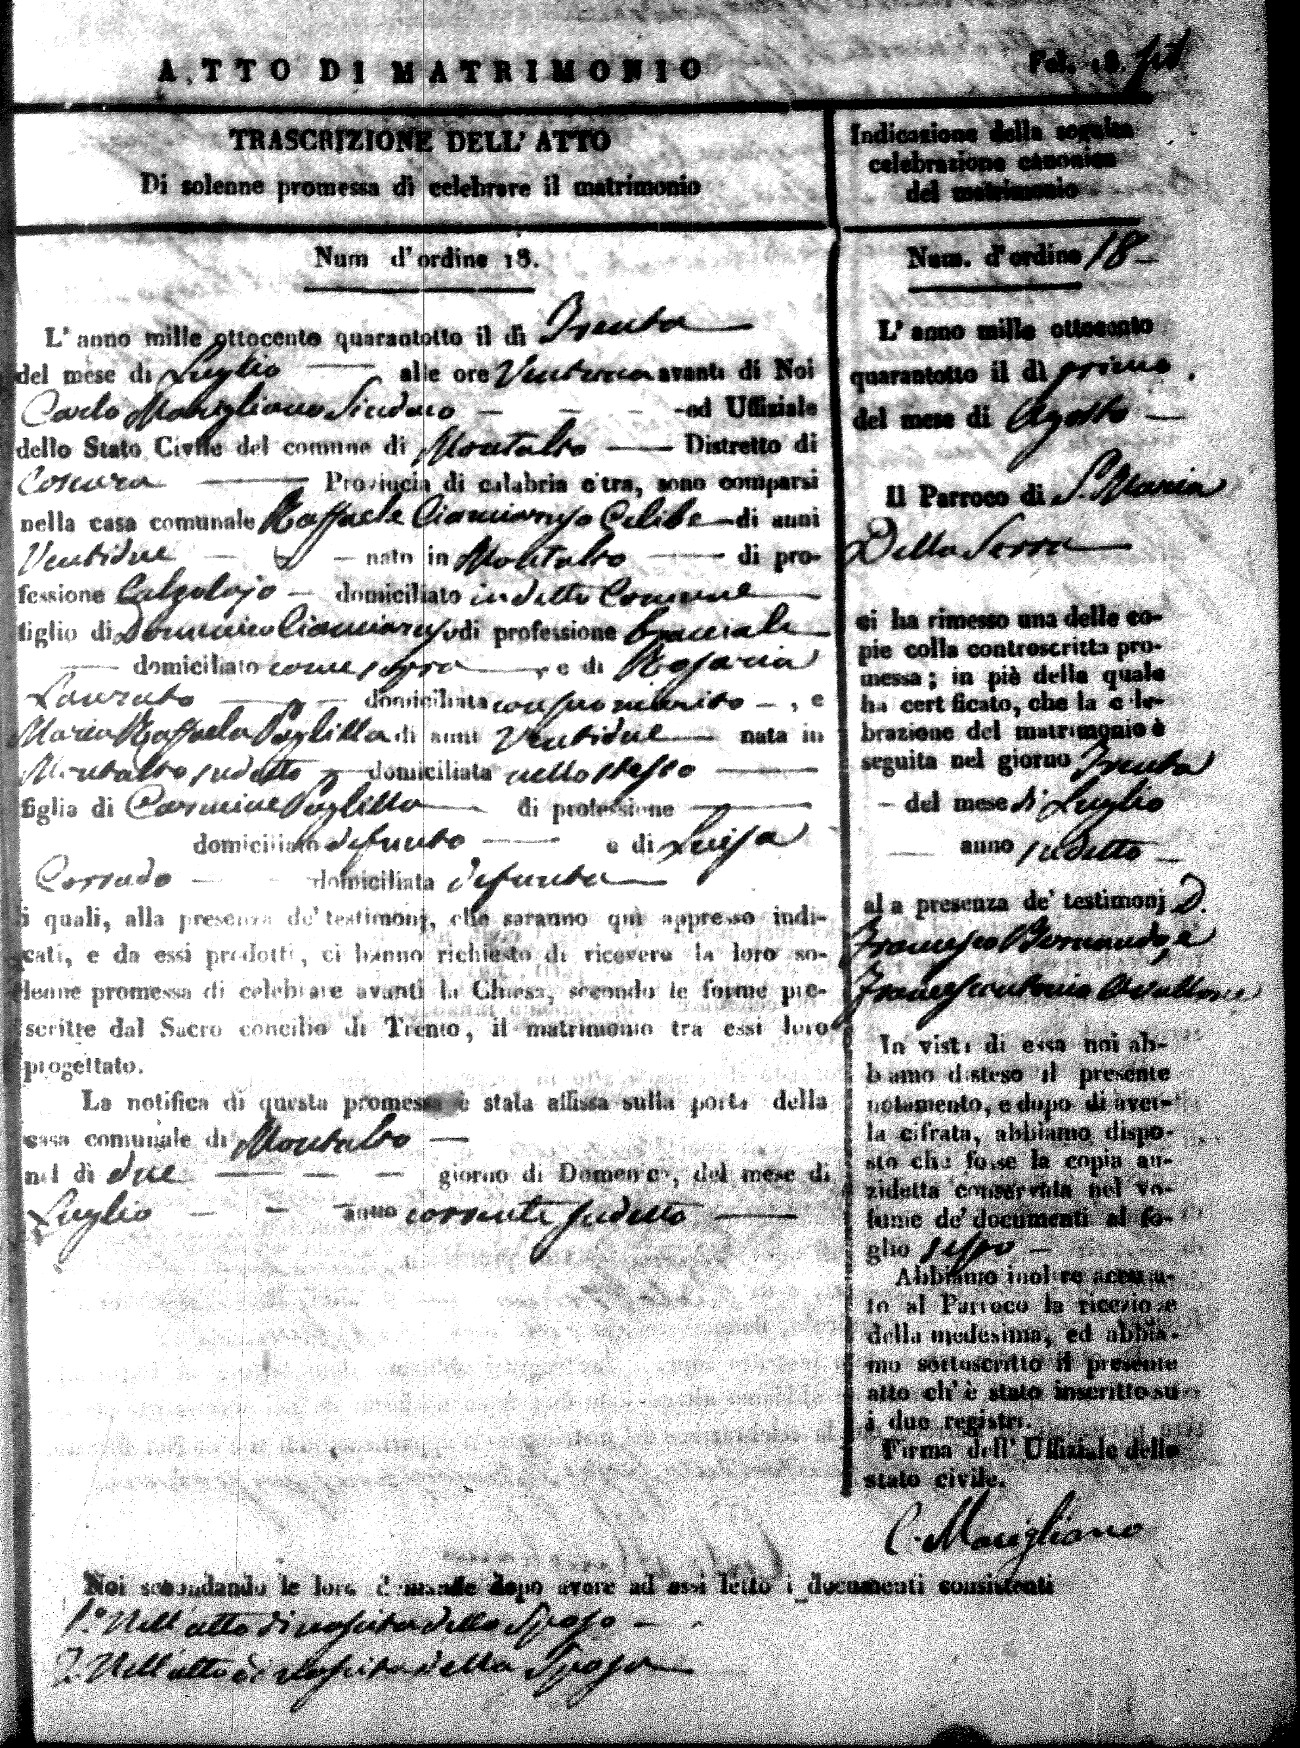 ATTO DI MATRIMONIO
Fol. 18.
TRASCRIZIONE DELL' ATTO
Di solenne promessa di celebrare il matrimonio
Num d'ordine 18.
L'anno mille ottocento quarantotto il dì Trenta
del mese di Luglio alle ore avanti di Noi
Carlo Marigliano Sindaco ed Uffiziale
dello Stato Civile del comune di Montalto Distretto di
Cosenza Provincia di calabria citra, sono comparsi
nella casa comunale Raffaele Cianciaruso Celibe di anni
Ventidue nato in Montalto di pro-
fessione Calzolajo domiciliato in detto Comune
figlio di Domenico Cianciaruso di professione Bracciale
domiciliato come sopra e di Rosaria
Laurato domiciliata con suo marito , e
Maria Raffaela Puglilla di anni Ventidue nata in
Montalto sudetto domiciliata nello stesso
figlia di Carmine Puglilla di professione
domiciliato defunto e di Luisa
Corrado domiciliata defunta
i quali, alla presenza de' testimonj, che saranno quì appresso indi-
cati, e da essi prodotti, ci hanno richiesto di ricevere la loro so-
lenne promessa di celebrare avanti la Chiesa, secondo le forme pre-
scritte dal Sacro concilio di Trento, il matrimonio tra essi loro
progettato.
La notifica di questa promessa è stata affissa sulla porta della
casa comunale di Montalto
nel dì due giorno di Domenica, del mese di
Luglio anno corrente sudetto
Indicazione della seguita
celebrazione canonica
del matrimonio
Num. d'ordine 18
L'anno mille ottocento
quarantotto il dì primo
del mese di Agosto
Il Parroco di S. Maria
Della Serra
ci ha rimesso una delle co-
pie colla controscritta pro-
messa; in piè della quale
ha certificato, che la cele-
brazione del matrimonio è
seguita nel giorno Trenta
del mese di Luglio
anno sudetto
alla presenza de' testimonj D.
Francesco Bernaudo, e
Francescantonio Avallone
In vista di essa noi ab-
biamo disteso il presente
notamento, e dopo di aver-
la cifrata, abbiamo dispo-
sto che fosse la copia an-
zidetta conservata nel vo-
lume de' documenti al fo-
glio sesso
Abbiamo inoltre accusa-
to al Parroco la ricezione
della medesima, ed abbia-
mo sottoscritto il presente
atto ch'è stato inscritto su
i due registri.
Firma dell' Uffiziale dello
stato civile.
C. Marigliano
Noi secondando le loro dimande dopo avere ad essi letto i documenti consistenti
1.° Nell'atto di nascita dello Sposo
2. Nell'atto di nascita della Sposa